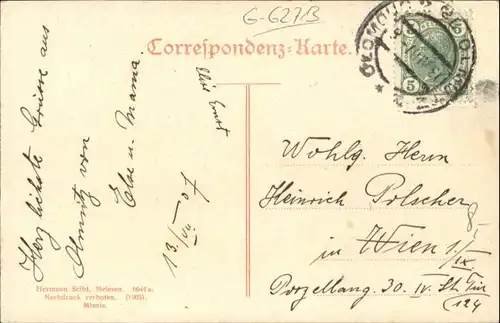 G-627B
Correspondenz-Karte.
OLOMOUC
5
Herzlichste Grüsse aus
Olmütz von
Else u. Mama.
13/VII 07
Wohlg. Herrn
Heinrich Polscher
in Wien 1/IX
Porzellang. 30. IV. St. Tür
124
Hermann Seibt, Meissen. 6641 a.
Nachdruck verboten. (1905).
Minola.